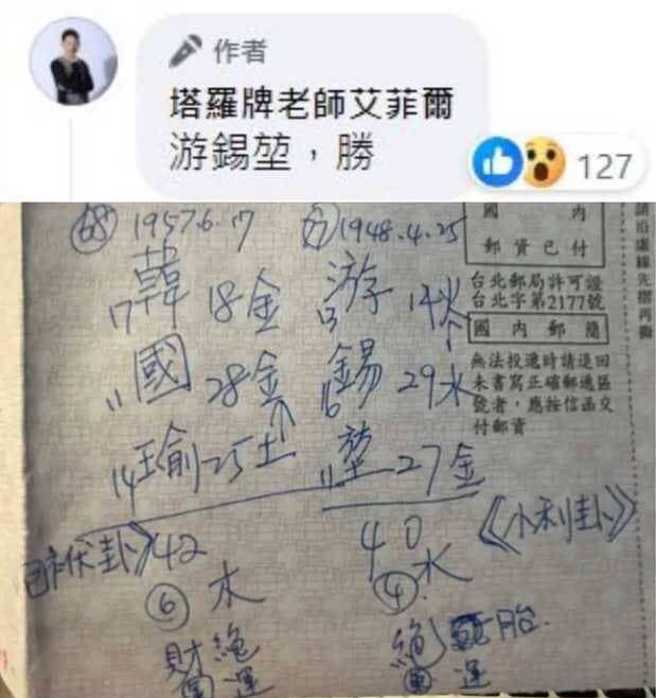 作者
塔羅牌老師艾菲爾
游錫堃，勝
127
68 1957.6.17
1948.4.25
17 韓 18金
13 游 14火
11 國 28金
16 錫 29水
14 瑜 25土
11 堃 27金
42
40 《小利卦》
⑥ 木
④ 水
財 絕
運 運
絕 胎
運 運
國 內
郵資已付
台北郵局許可證
台北字第2177號
國內郵簡
無法投遞時請退回
未書寫正確郵遞區
號者，應按信函交
付郵資
請沿虛線先摺再撕